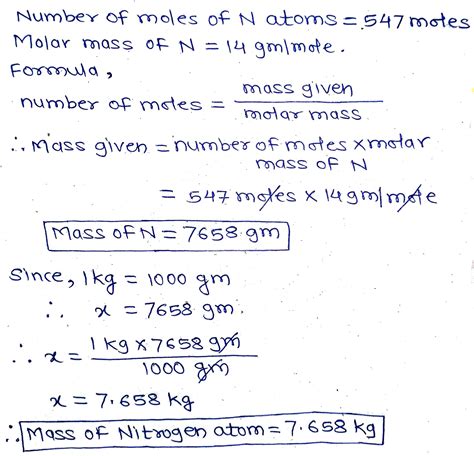 Number of moles of N atoms = 547 moles
Molar mass of N = 14 gm/mole.
Formula,
number of moles = mass given / molar mass
∴ Mass given = number of moles × molar
mass of N
= 547 moles × 14 gm/mole
Mass of N = 7658 gm
Since, 1kg = 1000 gm
∴ x = 7658 gm.
∴ x = 1 kg × 7658 gm / 1000 gm
x = 7.658 kg
∴ Mass of Nitrogen atom = 7.658 kg